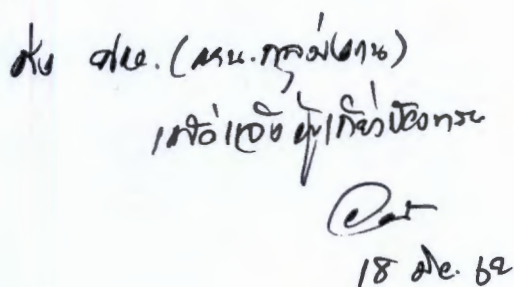 ส่ง ศษ. (หน.กลุ่มงาน)
เพื่อแจ้งผู้เกี่ยวข้องทราบ
18 มี.ค. 62